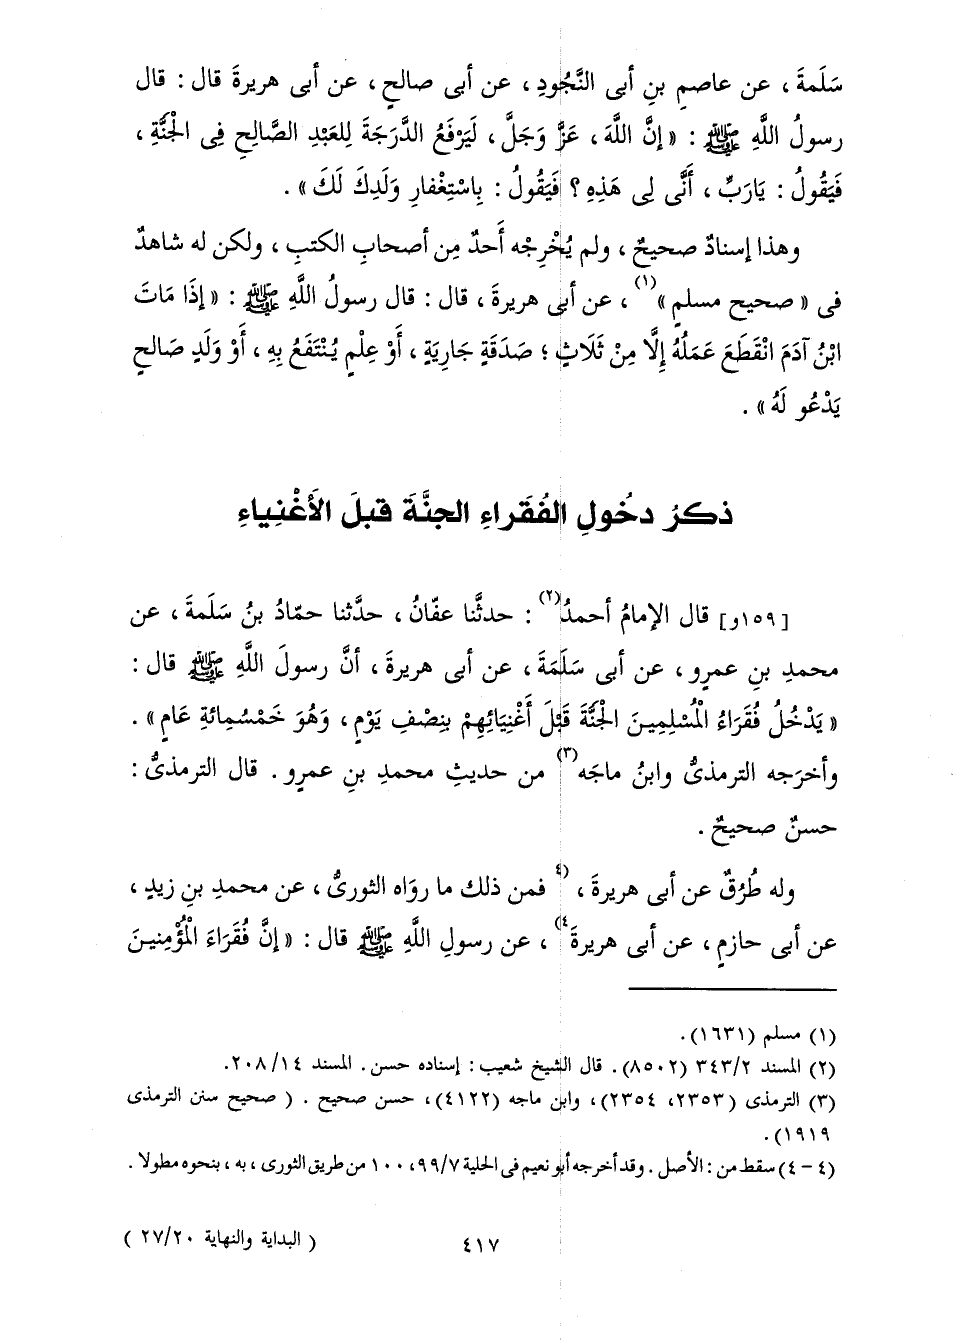 سَلَمةَ ، عن عاصمِ بنِ أبى النَّجُودِ ، عن أبى صالحٍ ، عن أبى هريرةَ قال : قال
رسولُ اللَّهِ ﷺ : « إنَّ اللَّهَ ، عَزَّ وَجَلَّ ، لَيَرْفَعُ الدَّرَجَةَ لِلعَبْدِ الصَّالِحِ فِى الْجَنَّةِ ،
فَيَقُولُ : يَارَبِّ ، أَنَّى لِى هَذِهِ ؟ فَيَقُولُ : بِاسْتِغْفارِ وَلَدِكَ لَكَ » .
وهذا إسنادٌ صحيحٌ ، ولم يُخْرِجْه أَحدٌ مِن أصحابِ الكتبِ ، ولكن له شاهدٌ
فى « صحيح مسلمٍ »(١) ، عن أبى هريرةَ ، قال : قال رسولُ اللَّهِ ﷺ : « إذَا مَاتَ
ابْنُ آدَمَ انْقَطَعَ عَمَلُهُ إِلَّا مِنْ ثَلَاثٍ ؛ صَدَقَةٍ جَارِيَةٍ ، أَوْ عِلْمٍ يُنْتَفَعُ بِهِ ، أَوْ وَلَدٍ صَالحٍ
يَدْعُو لَهُ » .
ذكرُ دخُولِ الفُقَراءِ الجنَّةَ قبلَ الأَغْنِياءِ
[ ١٥٩و] قال الإمامُ أحمدُ(٢) : حدثَّنا عفّانُ ، حدَّثنا حمّادُ بنُ سَلَمةَ ، عن
محمدِ بنِ عمرٍو ، عن أبى سَلَمَةَ ، عن أبى هريرةَ ، أنَّ رسولَ اللَّهِ ﷺ قال :
« يَدْخُلُ فُقَرَاءُ الْمُسْلِمِينَ الجْنَّةَ قَبْلَ أَغْنِيَائِهِمْ بِنِصْفِ يَوْمٍ ، وَهُوَ خَمْسُمِائَةِ عَامٍ » .
وأخرَجه الترمذىُّ وابنُ ماجَه(٣) من حديثِ محمدِ بنِ عمرو . قال الترمذىُّ :
حسنٌ صحيحٌ .
وله طُرُقٌ عن أبى هريرةَ ، (٤ فمن ذلك ما روَاه الثورىُّ ، عن محمدِ بنِ زيدٍ ،
عن أبى حازمٍ ، عن أبى هريرةَ ٤) ، عن رسولِ اللَّهِ ﷺ قال : « إنَّ فُقَرَاءَ الْمُؤْمِنينَ
(١) مسلم (١٦٣١).
(٢) المسند ٣٤٣/٢ (٨٥٠٢). قال الشيخ شعيب : إسناده حسن . المسند ٢٠٨/١٤.
(٣) الترمذى (٢٣٥٣، ٢٣٥٤)، وابن ماجه (٤١٢٢)، حسن صحيح . ( صحيح سنن الترمذى
١٩١٩).
(٤ - ٤) سقط من : الأصل . وقد أخرجه أبو نعيم فى الحلية ٩٩/٧، ١٠٠ من طريق الثورى ، به ، بنحوه مطولا .
٤١٧
( البداية والنهاية ٢٧/٢٠ )